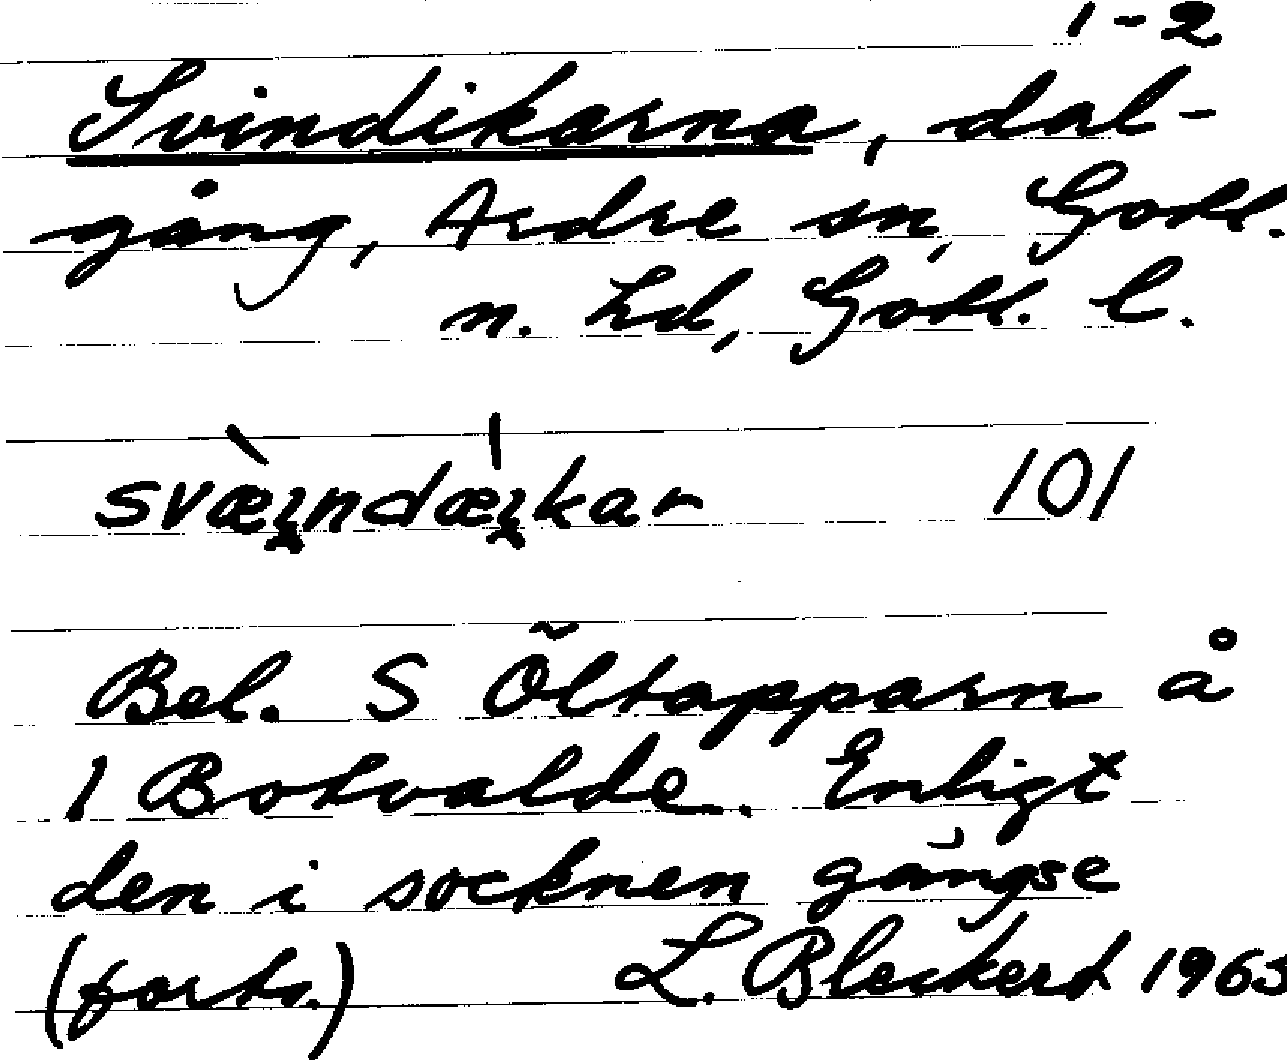 1-2
Svindikarna, dal-
gång, Ardre sn, Gotl.
n. hd, Gotl. l.
svæ̀i̯ndæ̍i̯kar 101
Bel. S Öltapparn å
1 Botvalde. Enligt
den i socknen gängse
(forts.) L. Bleckert 1963